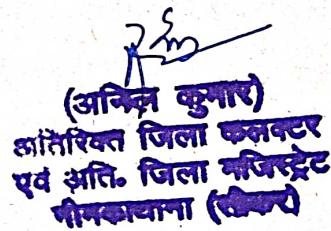 (अनिल कुमार)
अतिरिक्त जिला कलक्टर
एवं अति० जिला मजिस्ट्रेट
नीमकाथाना (सीकर)